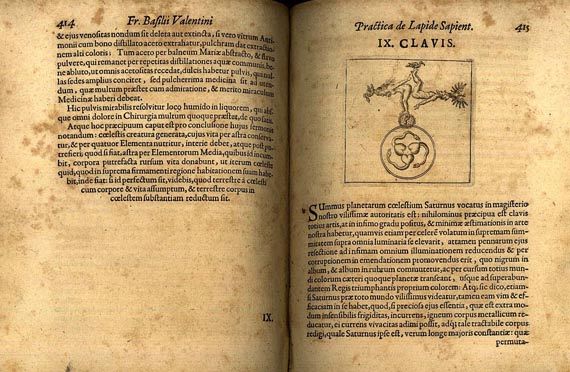 414 Fr. Basilii Valentini
& ejus venositas nondum sit deleta aut extincta, si vero vitrum Auri-
monii cum bono distillato aceto extrahatur, pulchram dat extractio-
nem alti coloris: Tum acero per balneum Mariæ abstracto, & flavo
pulvere, qui remanet per repetitas distillationes aquæ communis, be-
ne abluto, ut omnis acetositas recedat, dulcis habetur pulvis, qui nul-
las sedes amplius conciter, sed pulcherrima medicina sit ad uten-
dum, quæ multum præstet cum admiratione, & merito miraculum
Medicinæ haberi debeat.
Hic pulvis mirabilis resolvitur loco humido in liquorem, qui abs-
que omni dolore in Chirurgia multum quoque præstet, de quo satis.
Atque hoc præcipuum caput est pro conclusione hujus sermonis
notandum: cœlestis creatura generata, cujus vita per astra conserva-
tur, & per quatuor Elementa nutritur, interire debet, atque post pu-
trefieri; quod si fiat, astra per Elementorum Media, quibus id incum-
bit, corpora putrefacta rursum vita donabunt, ut iterum cœleste
quid, quod in suprema firmamenti regione habitationem suam habe-
bit, inde fiat: si id perfectum sit, videbis, quod terrestre à cœlesti
cum corpore & vita assumptum, & terrestre corpus in
cœlestem substantiam reductum sit.
IX.
Practica de Lapide Sapient. 415
IX. CLAVIS.
SUmmus planetarum cœlestium Saturnus vocatus in magisterio
nostro vilissimæ autoritatis est: nihilominus præcipua est clavis
totius artis, at in infimo gradu positus, & minimæ æstimationis in arte
nostra habetur, quamvis etiam per celerem volatum in supremam sum-
mitatem supra omnia luminaria se elevarit, attamen pennarum ejus
resectione ad infimam omnium illuminationem reducendus & per
corruptionem in emendationem promovendus erit, quo nigrum in
album, & album in rubrum commutetur, ac per cursum totius mun-
di colorum cæteri quoque planetæ transeant, usque ad superabun-
dantem Regis triumphantis proprium colorem: Atq; sic dico, etiam-
si Saturnus præ toto mundo vilissimus videatur, tamen eam vim & ef-
ficaciam in se habet, quod, si preciosa ejus essentia, quæ est extra mo-
dum insensibilis frigiditas, incurrens, igneum corpus metallicum redu-
catur, ei currens vivacitas adimi possit, adq; tale tractabile corpus
redigi, quale Saturnus ipse est, verum longe majoris constantiæ: quæ
permuta-